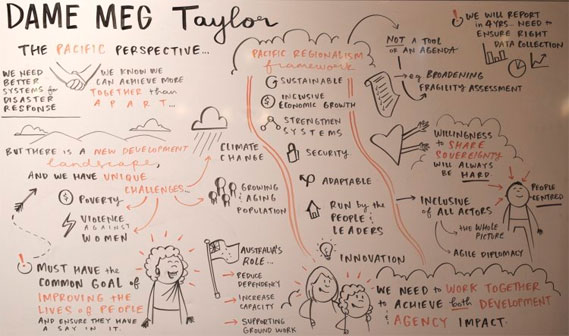 DAME MEG Taylor
THE PACIFIC PERSPECTIVE...
WE NEED
BETTER
SYSTEMS for
DISASTER
RESPONSE
WE KNOW WE
CAN ACHIEVE MORE
TOGETHER than
APART...
BUT THERE IS A NEW DEVELOPMENT
landscape,
AND WE HAVE UNIQUE
CHALLENGES...
$ POVERTY
VIOLENCE
AGAINST
WOMEN
CLIMATE
CHANGE
GROWING
& AGING
POPULATION
MUST HAVE the
COMMON GOAL of
IMPROVING THE
LIVES OF PEOPLE
AND ENSURE THEY HAVE
A SAY IN IT.
PACIFIC REGIONALISM
framework
SUSTAINABLE
$ INCLUSIVE
ECONOMIC GROWTH
STRENGTHEN
SYSTEMS
SECURITY
ADAPTABLE
RUN by the
PEOPLE &
LEADERS
INNOVATION
AUSTRALIA'S
ROLE...
REDUCE
DEPENDENCY
INCREASE
CAPACITY
SUPPORTING
GROUND WORK
NOT A TOOL
OR AN AGENDA
eg. BROADENING
FRAGILITY ASSESSMENT
WE WILL REPORT
in 4 YRS... NEED to
ENSURE RIGHT
DATA COLLECTION
WILLINGNESS
to SHARE
SOVEREIGNTY
WILL ALWAYS
be HARD
INCLUSIVE
of ALL ACTORS
the WHOLE
PICTURE
AGILE DIPLOMACY
PEOPLE
CENTRED
WE NEED to WORK TOGETHER
to ACHIEVE both DEVELOPMENT
& AGENCY IMPACT.